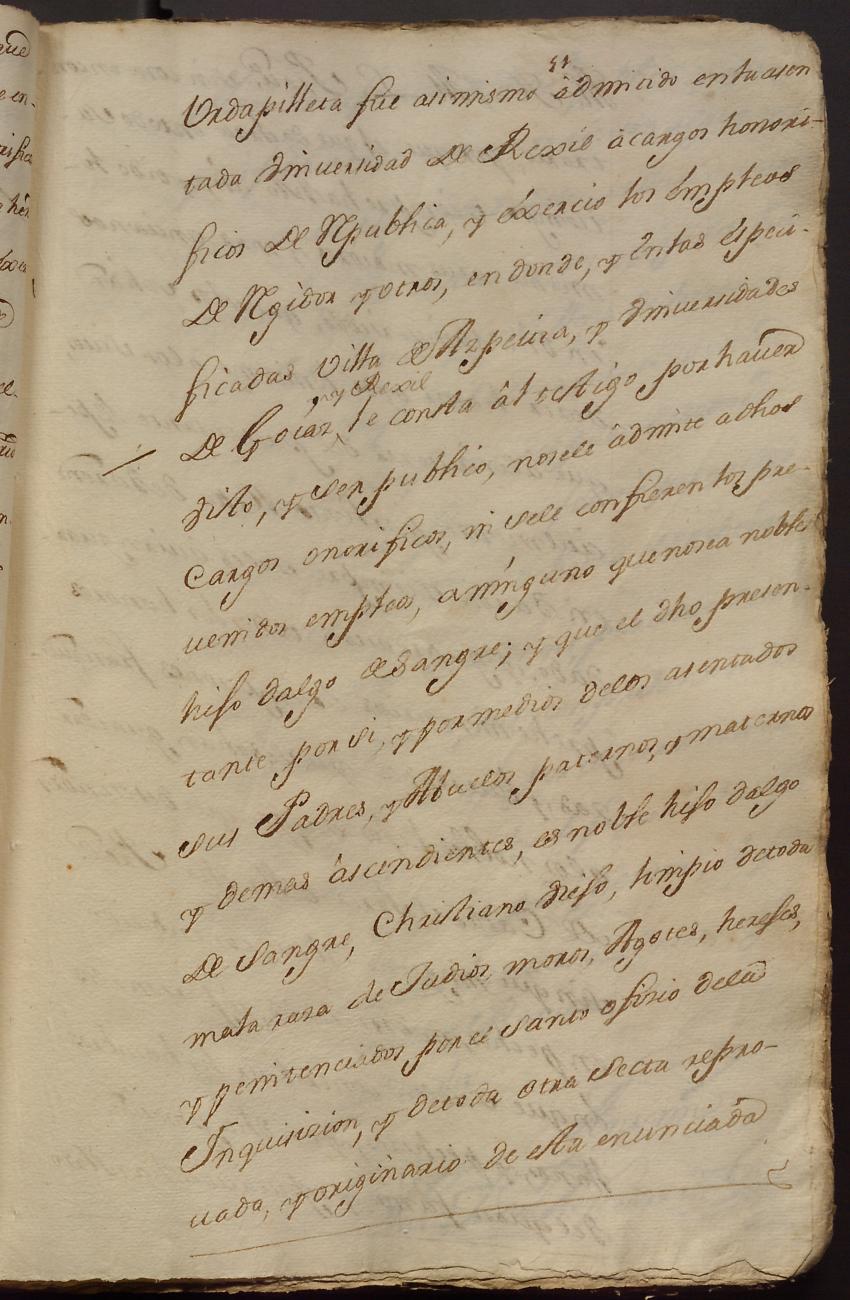 Urdapilleta fue asimismo âdmitido en la asen
tada Vniversidad de Rexil â cargos honori-
ficos de Rpublica, y êxercio los êmpleos
de Rgidor y otros, en donde, y en las êspeci-
ficadas villa de Azpeitia, y Vniversidades
y Rexil
de Goiaz, le consta âl testigo por haver
visto, y ser publico, no se le âdmite a dhos
cargos onorificos, ni se le confieren los pre-
venidos empleos, a ninguno que no sea noble
hijo dalgo de sangre; y que el dho presen-
tante por si, y por medios de los asentados
sus Padres, y Abuelos paternos, y maternos
y demas âscendientes, es noble hijo dalgo
de sangre, Christiano viejo, limpio de toda
mala raza de Judios, moros, Agotes, herejes,
y penitenciados por el santo ofizio de la
Inquisizion, y de toda otra secta repro-
vada, y originario de esta enunciada